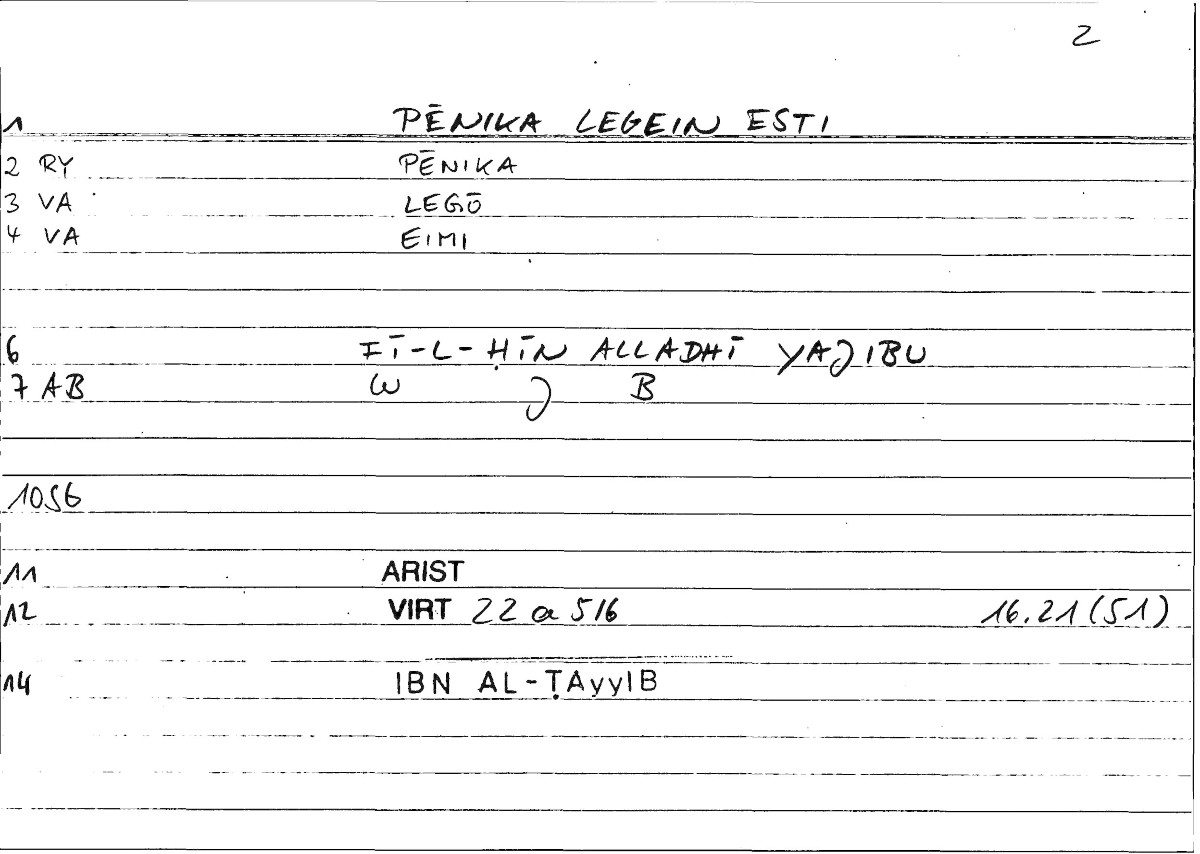 2
1 PĒNIKA LEGEIN ESTI
2 RY PĒNIKA
3 VA LEGŌ
4 VA EIMI
6 FĪ-L-ḤĪN ALLADHĪ YAJIBU
7 AB W J B
10S6
11 ARIST
12 VIRT 22 a 5/6 16.21 (S1)
14 IBN AL-ṬAyyIB